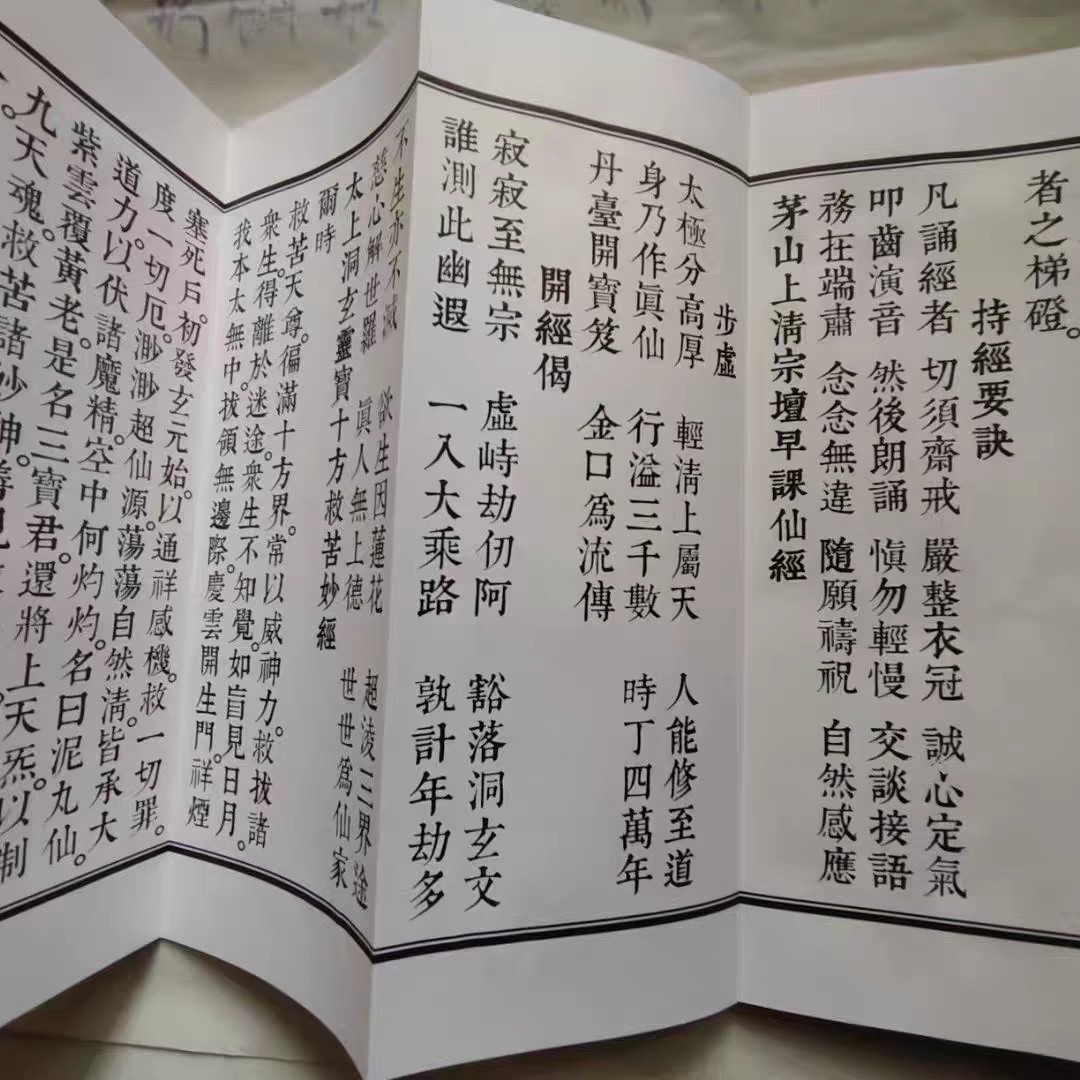 者之梯磴。
持經要訣
凡誦經者 切須齋戒 嚴整衣冠 誠心定氣
叩齒演音 然後朗誦 慎勿輕慢 交談接語
務在端肅 念念無違 隨願禱祝 自然感應
茅山上清宗壇早課仙經
步虛
太極分高厚 輕清上屬天 人能修至道
身乃作眞仙 行溢三千數 時丁四萬年
丹臺開寶笈 金口爲流傳
開經偈
寂寂至無宗 虛峙劫仞阿 豁落洞玄文
誰測此幽遐 一入大乘路 孰計年劫多
不生亦不滅 欲生因蓮花 超凌三界途
慈心解世羅 眞人無上德 世世爲仙家
太上洞玄靈寶十方救苦妙經
爾時
救苦天尊。徧滿十方界。常以威神力。救拔諸
衆生。得離於迷途。衆生不知覺。如盲見日月。
我本太無中。拔領無邊際。慶雲開生門。祥煙
塞死戶。初發玄元始。以通祥感機。救一切罪。
度一切厄。渺渺超仙源。蕩蕩自然清。皆承大
道力。以伏諸魔精。空中何灼灼。名曰泥丸仙。
紫雲覆黃老。是名三寶君。還將上天炁。以制
九天魂。救苦諸妙神。善見